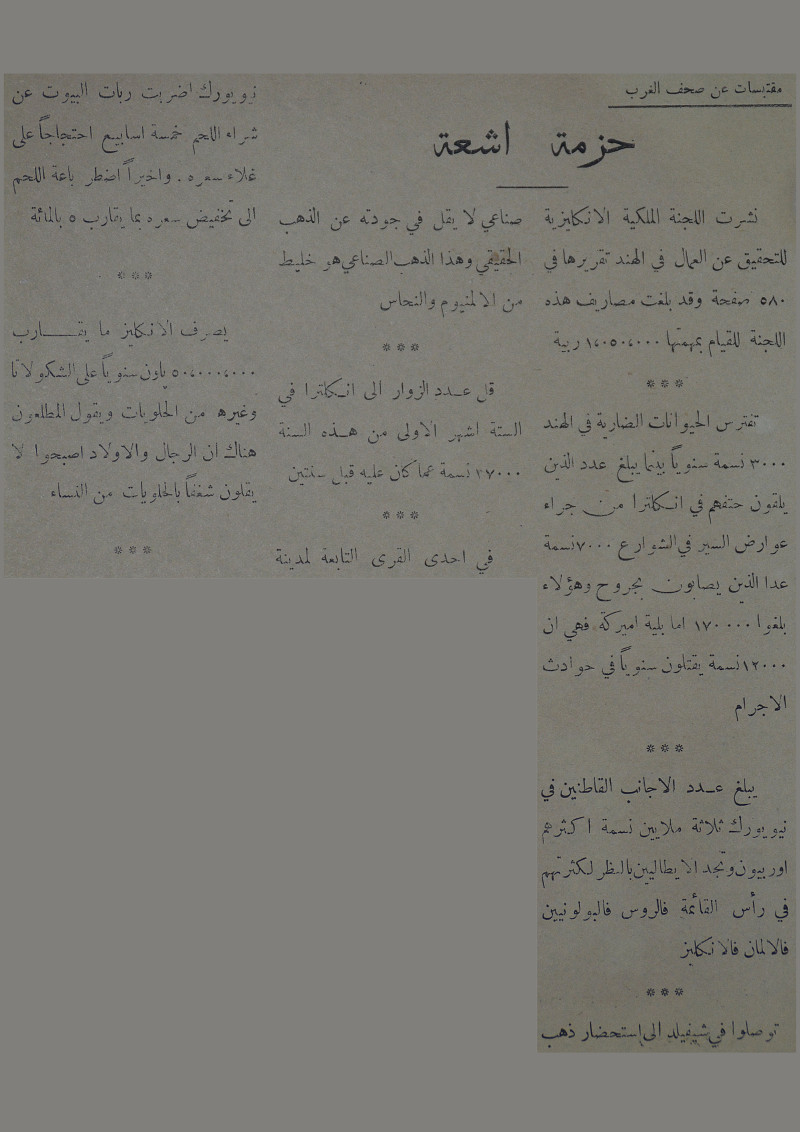 مقتبسات عن صحف الغرب
حزمة اشعة
نشرت اللجنة الملكية الانكليزية
للتحقيق عن العمال في الهند تقريرها في
٥٨٠ صفحة وقد بلغت مصاريف هذه
اللجنة للقيام بمهمتها ١،٠٥٠،٠٠٠ ربية
***
تفترس الحيوانات الضارية في الهند
٣٠٠٠ نسمة سنوياً بينما يبلغ عدد الذين
يلقون حتفهم في انكلترا من جراء
عوارض السير في الشوارع ٧٠٠٠ نسمة
عدا الذين يصابون بجروح وهؤلاء
بلغوا ١٧٠٠٠٠ اما بلية اميركة فهي ان
١٢٠٠٠ نسمة يقتلون سنوياً في حوادث
الاجرام
***
يبلغ عدد الاجانب القاطنين في
نيويورك ثلاثة ملايين نسمة اكثرهم
اوربيون وتجد الايطاليين بالنظر لكثرتهم
في رأس القائمة فالروس فالبولونيين
فالالمان فالانكليز
***
توصلوا في شيفيلد الى استحضار ذهب
صناعي لا يقل في جودته عن الذهب
الحقيقي وهذا الذهب الصناعي هو خليط
من الالمنيوم والنحاس
***
قل عدد الزوار الى انكلترا في
الستة اشهر الاولى من هذه السنة
٢٧٠٠٠ نسمة عما كان عليه قبل سنتين
***
في احدى القرى التابعة لمدينة
نيويورك اضربت ربات البيوت عن
شراء اللحم خمسة اسابيع احتجاجاً على
غلاء سعره. واخيراً اضطر باعة اللحم
الى تخفيض سعره بما يقارب ٥ بالمائة
***
يصرف الانكليز ما يقارب
٥٠،٠٠٠،٠٠٠ پاون سنوياً على الشكولاتا
وغيرها من الحلويات ويقول المطلعون
هناك ان الرجال والاولاد اصبحوا لا
يقلون شغفاً بالحلويات من النساء
***